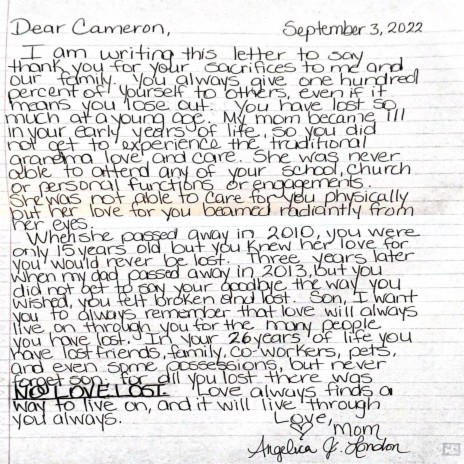 Dear Cameron, September 3, 2022
I am writing this letter to say
thank you for your sacrifices to me and
our family. You always give one hundred
percent of yourself to others, even if it
means you lose out. You have lost so
much at a young age. My mom became ill
in your early years of life, so you did
not get to experience the traditional
grandma love and care. She was never
able to attend any of your school, church
or personal functions or engagements.
She was not able to care for you physically
but her love for you beamed radiantly from
her eyes.
When she passed away in 2010, you were
only 15 years old but you knew her love for
you would never be lost. Three years later
when my dad passed away in 2013, but you
did not get to say your goodbye the way you
wished, you felt broken and lost. Son, I want
you to always remember that love will always
live on through you for the many people
you have lost. In your 26 years of life you
have lost friends, family, co-workers, pets,
and even some possessions, but never
forget son, for all you lost there was
NO LOVE LOST. Love always finds a
way to live on, and it will live through
you always.
Love,
Mom
Angelica J. London